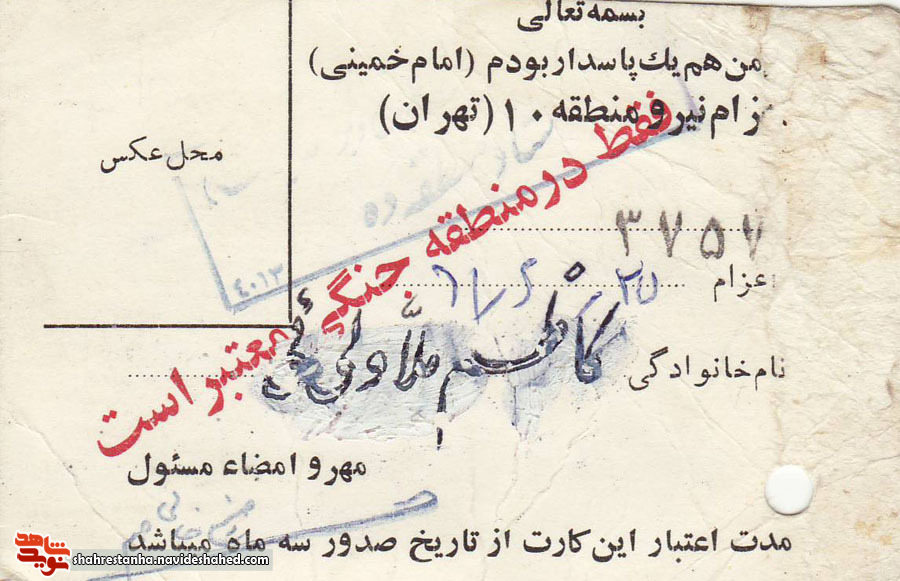 بسمه تعالی
من هم یك پاسدار بودم (امام خمینی)
زام نیرو منطقه ۱۰ (تهران)
محل عکس
فقط در منطقه جنگی معتبر است
۳۷۵۷
عزام
نام خانوادگی کاظم
مهر و امضاء مسئول
مدت اعتبار این کارت از تاریخ صدور سه ماه میباشد
۴۰۱۳
نوید شاهد
shahrestanha.navideshahed.com